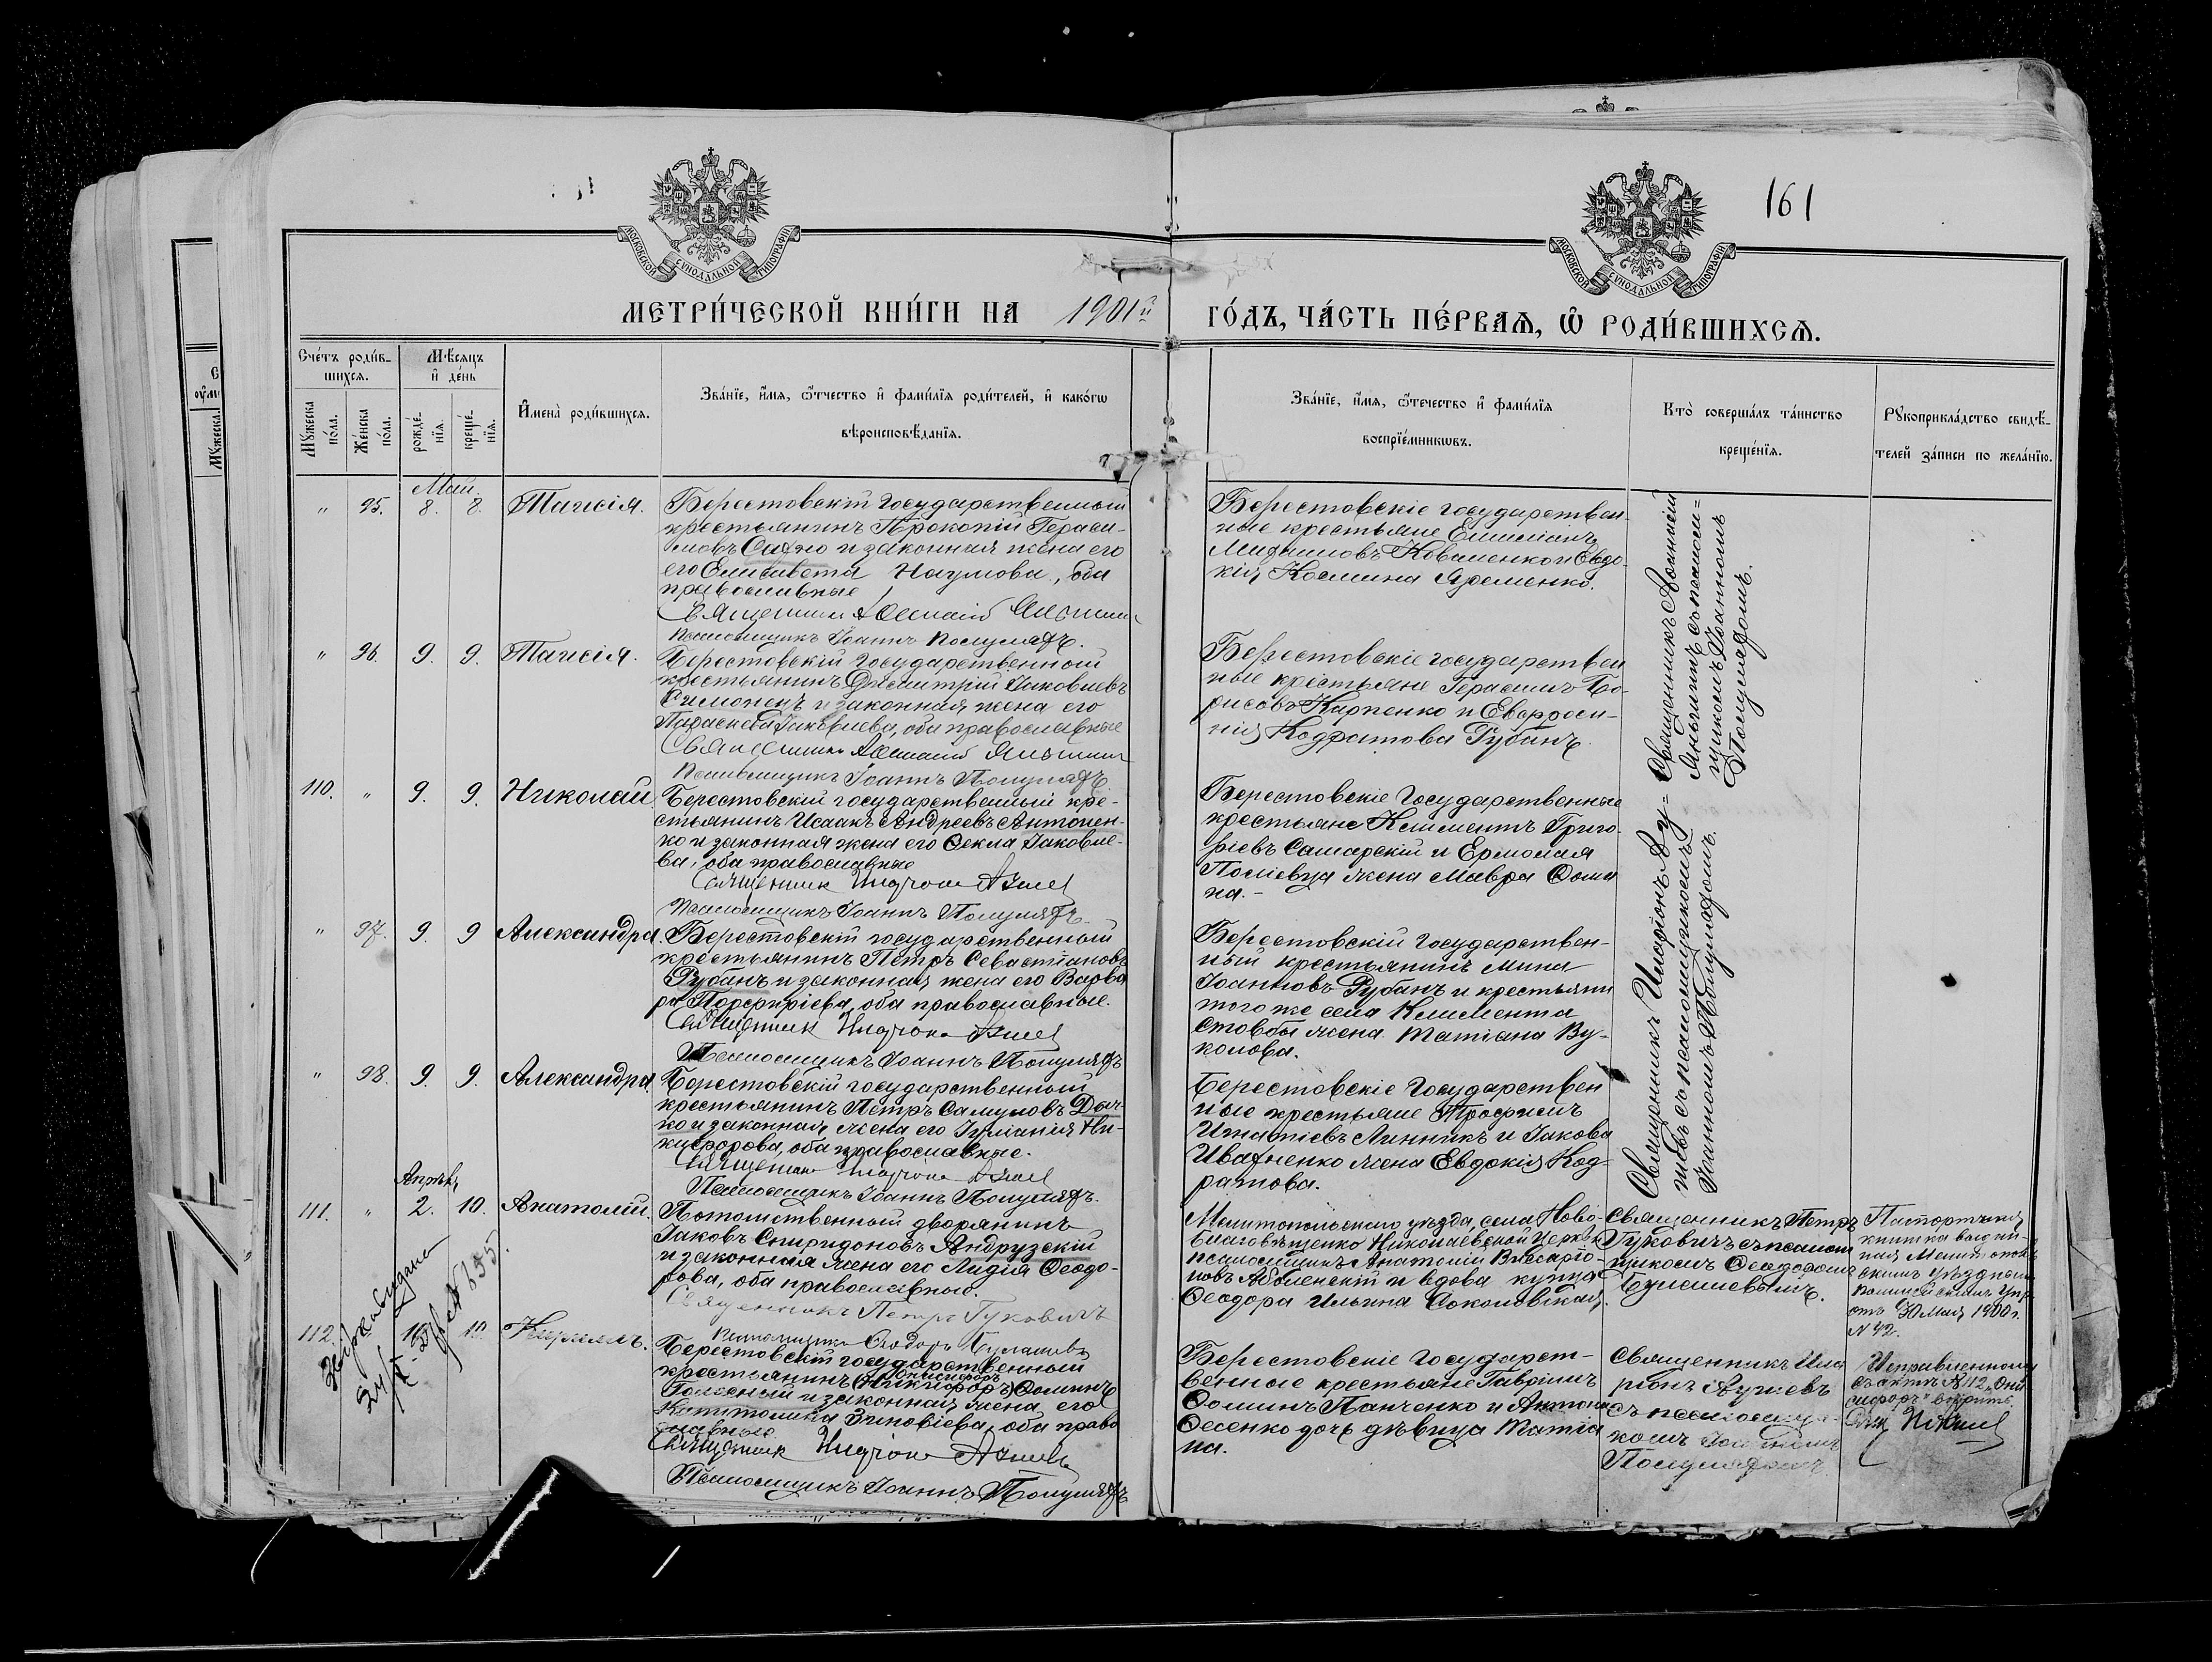 161
МОСКОВСКОЙ СѴНОДАЛЬНОЙ ТИПОГРАФІИ
МОСКОВСКОЙ СѴНОДАЛЬНОЙ ТИПОГРАФІИ
МЕТРИ́ЧЕСКОЙ КНИ́ГИ НА 1901й ГО́ДЪ, ЧА́СТЬ ПЕ́РВАѦ, Ѡ РОДИ́ВШИХСѦ.
Сче́тъ роди́в-
шихся.
Мѣ́сяцъ
и́ де́нь
Мꙋ́жеска
по́ла.
Же́нска
по́ла.
рожде́-
нїя.
креще́-
нїя.
И҆мена̀ роди́вшихся.
Зва́нїе, и҆́мя, ѻ҆́тчество и҆ фами́лїя роди́телей, и҆ како́гѡ
вѣроисповѣ́данїя.
Зва́нїе, и҆́мя, ѻ҆́течество и҆ фами́лїя
воспрїе́мникѡвъ.
Кто̀ соверша́лъ та́инство
креще́нїя.
Рꙋкоприкла́дство свидѣ́-
телей за́писи по жела́нїю.
Май.
" 95. 8. 8. Таисія.
Берестовскій государственный
крестьянинъ Прокопій Гераси-
мовъ Сахно и законная жена его
его Елисавета Наумова, оба
православные
Псаломщикъ Іоаннъ Полулядъ.
Берестовскіе государствен-
ные крестьяне Емиліанъ
Коваленко и Евдо-
кія Косьмина Яременко.
Священникъ
съ псалом=
щикомъ Іоанномъ
Полулядомъ.
" 96. 9. 9. Таисія.
Берестовскій государственный
крестьянинъ Димитрій Іаковлевъ
Симоненъ и законная жена его
Параскева Іаковлева, оба православные
Псаломщикъ Іоаннъ Полулядъ
Берестовскіе государствен
ные крестьяне Герасимъ Бо-
рисовъ Карпенко и Евфроси-
нія Кодратова Рубанъ.
110. " 9. 9. Николай
Берестовскій государственный кре-
стьянинъ Исаакъ Андреевъ Антонен-
ко и законная жена его Ѳекла Іаковле-
ва, оба православные
Священник
Псаломщикъ Іоаннъ Полулядъ.
Берестовскіе государственные
крестьяне Климентъ Григо-
ріевъ Самарскій и Ермолая
Поліевца жена Мавра Ѳоми
на.-
Священникъ Иларіонъ Лу=
съ псаломщикомъ
Іоанномъ Полулядомъ.
" 97. 9. 9 Александра.
Берестовскій государственный
крестьянинъ Петръ Севастіановъ
Рубанъ и законная жена его Варва
ра Порфиріева, оба православные.
Священник
Псаломщикъ Іоаннъ Полулядъ
Берестовскій государствен-
ный крестьянинъ Мина
Іоанновъ Рубанъ и крестьяни
того же села Климента
Стовбы жена Татіана Ву-
колова.
" 98. 9. 9. Александра.
Берестовскій государственный
крестьянинъ Петръ Самуиловъ
ко и законная жена его Іуліанія Ни-
кифорова, оба православные.
Псаломщикъ Іоаннъ Полулядъ.
Берестовскіе государствен
ные крестьяне Трофимъ
Игнатіевъ Линникъ и Іакова
Ивахненко жена Евдокія Код-
ратова.
Апрѣль
111. " 2. 10. Анатолій.
Потомственный дворянинъ
Іаковъ Спиридоновъ Андрузскій
и законная жена его Лидія Ѳеодо-
рова, оба православные.
Священникъ Петръ Гуковичъ
Псаломщикъ Ѳеодоръ
Мелитопольскаго уѣзда, села Ново-
благовѣщенко Николаевской церкви
псаломщикъ Анатолій Виссаріо-
новъ и вдова купца
Ѳеодора Ильина Соколовская.
Священникъ Петръ
Гуковичъ съ псалом
щикомъ Ѳеодоромъ
книжка
уѣзднымъ
полицейскимъ упр.
отъ 30 Мая 1900 г.
N 42.
112. 10. 10. Кириллъ.
Берестовскій государственный
Онисифоръ
крестьянинъ (Никифоръ) Ѳоминъ
и законная жена его
Зиновіева, оба право
славные
Священник
Псаломщикъ Іоаннъ Полулядъ
Берестовскіе государст-
венные крестьяне Гавріилъ
Ѳоминъ Панченко и Антона
Ѳесенко дочь дѣвица Татіа
на.
Священникъ Ила
ріонъ
съ псаломщи-
комъ Іоанномъ
Полулядомъ.
Исправленному
въ актѣ N 112 „Они
сифоръ" вѣрить.